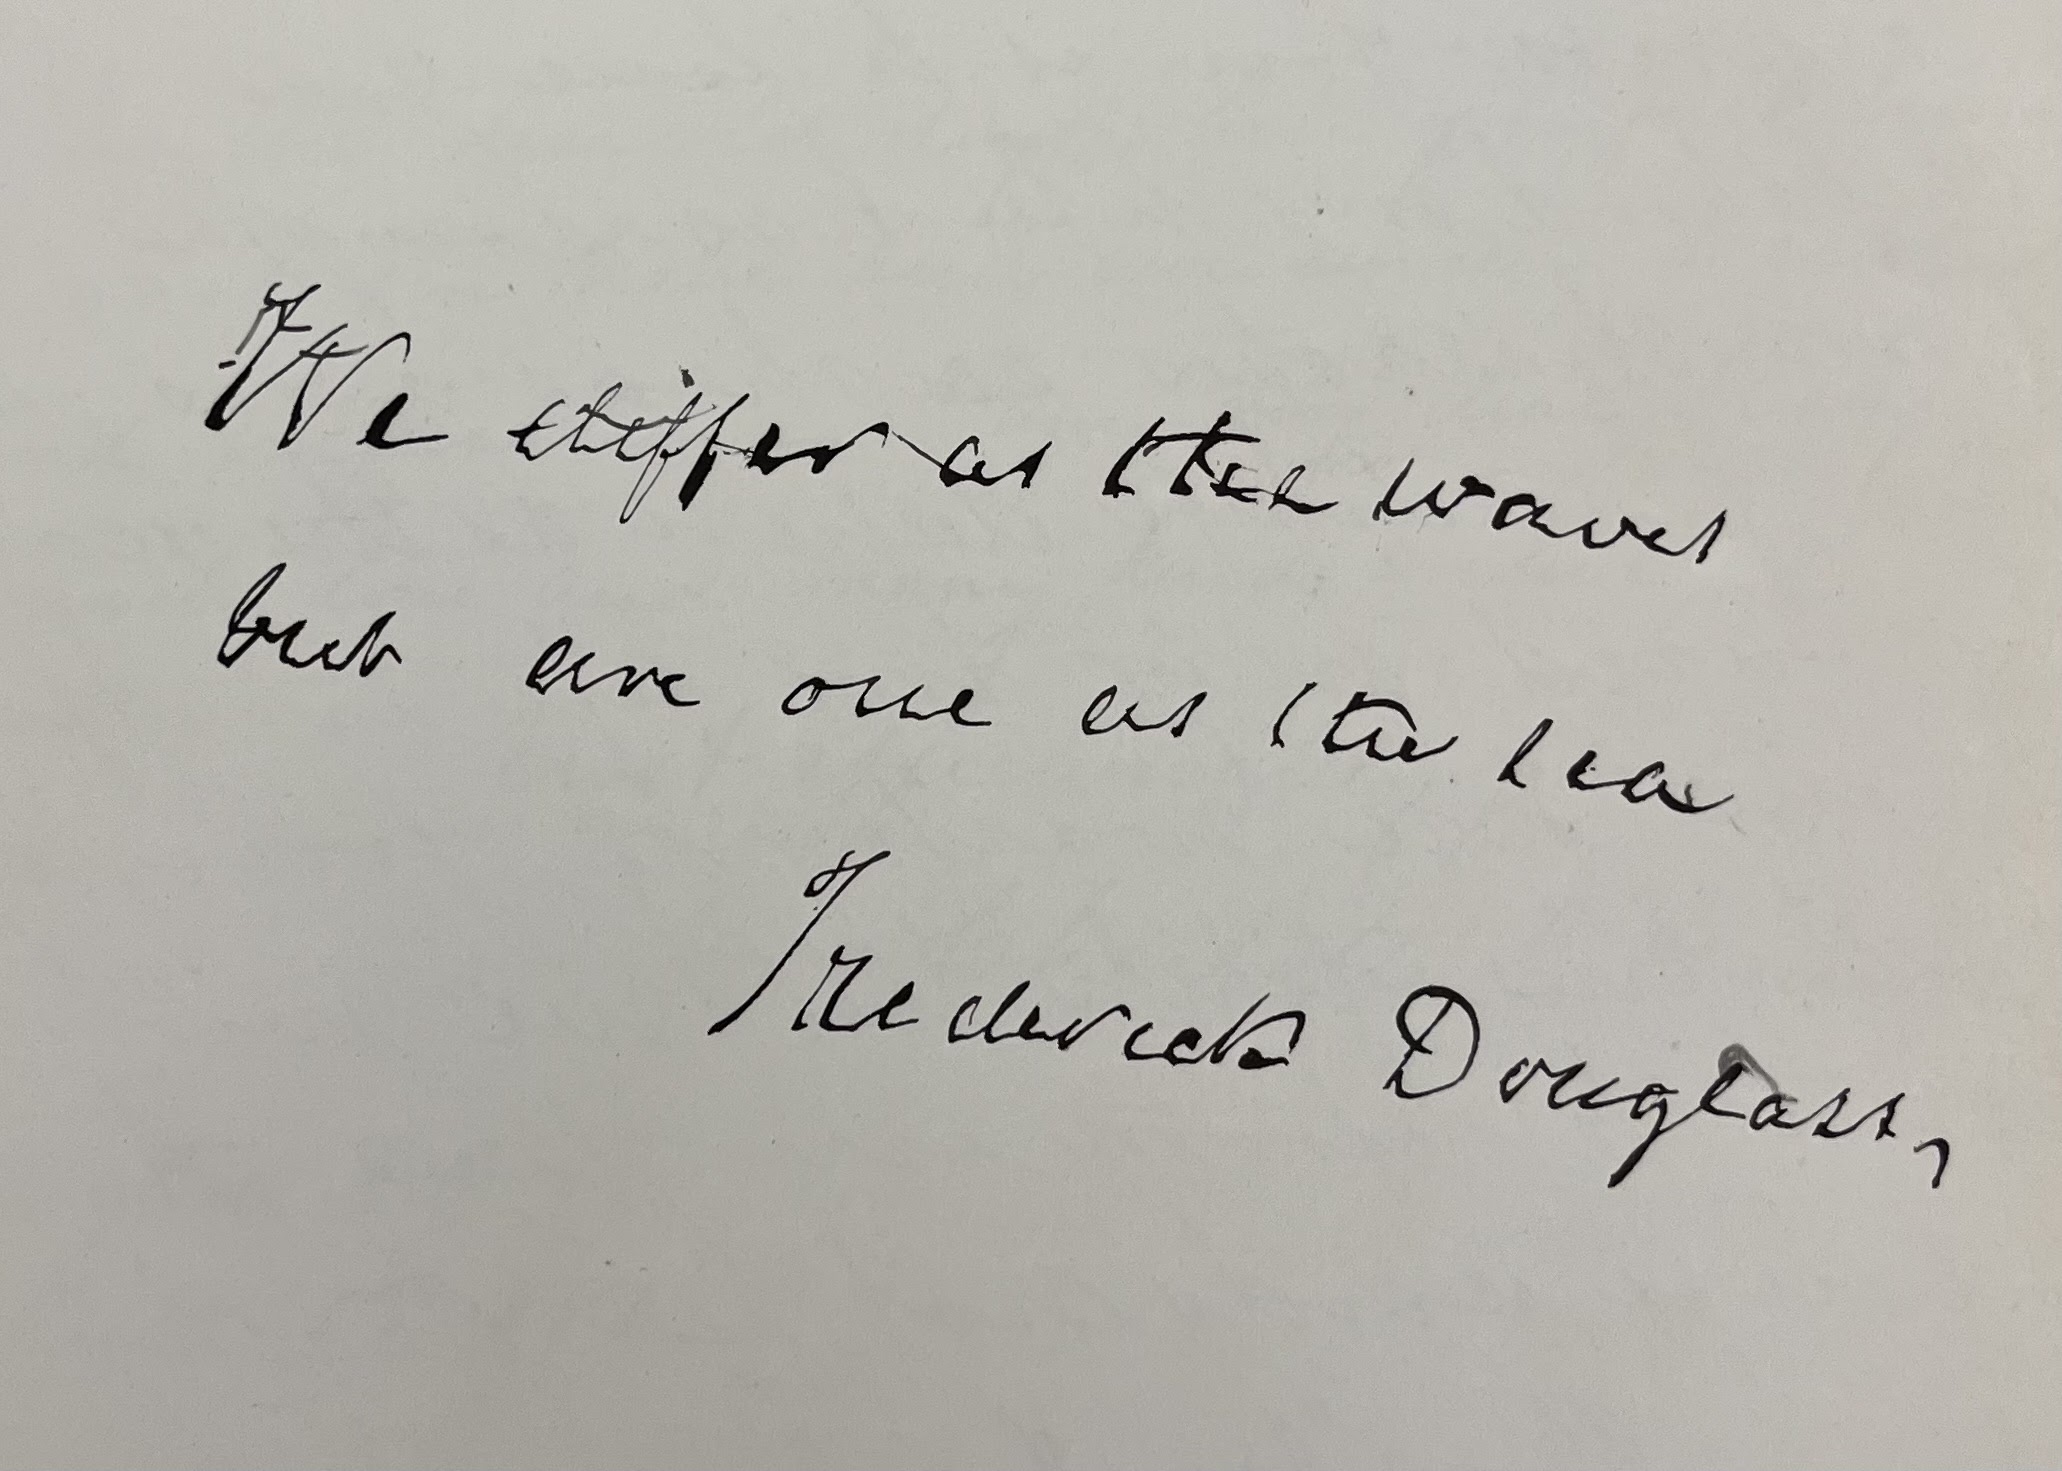 We differ as the waves
but are one as the sea
Frederick Douglass,